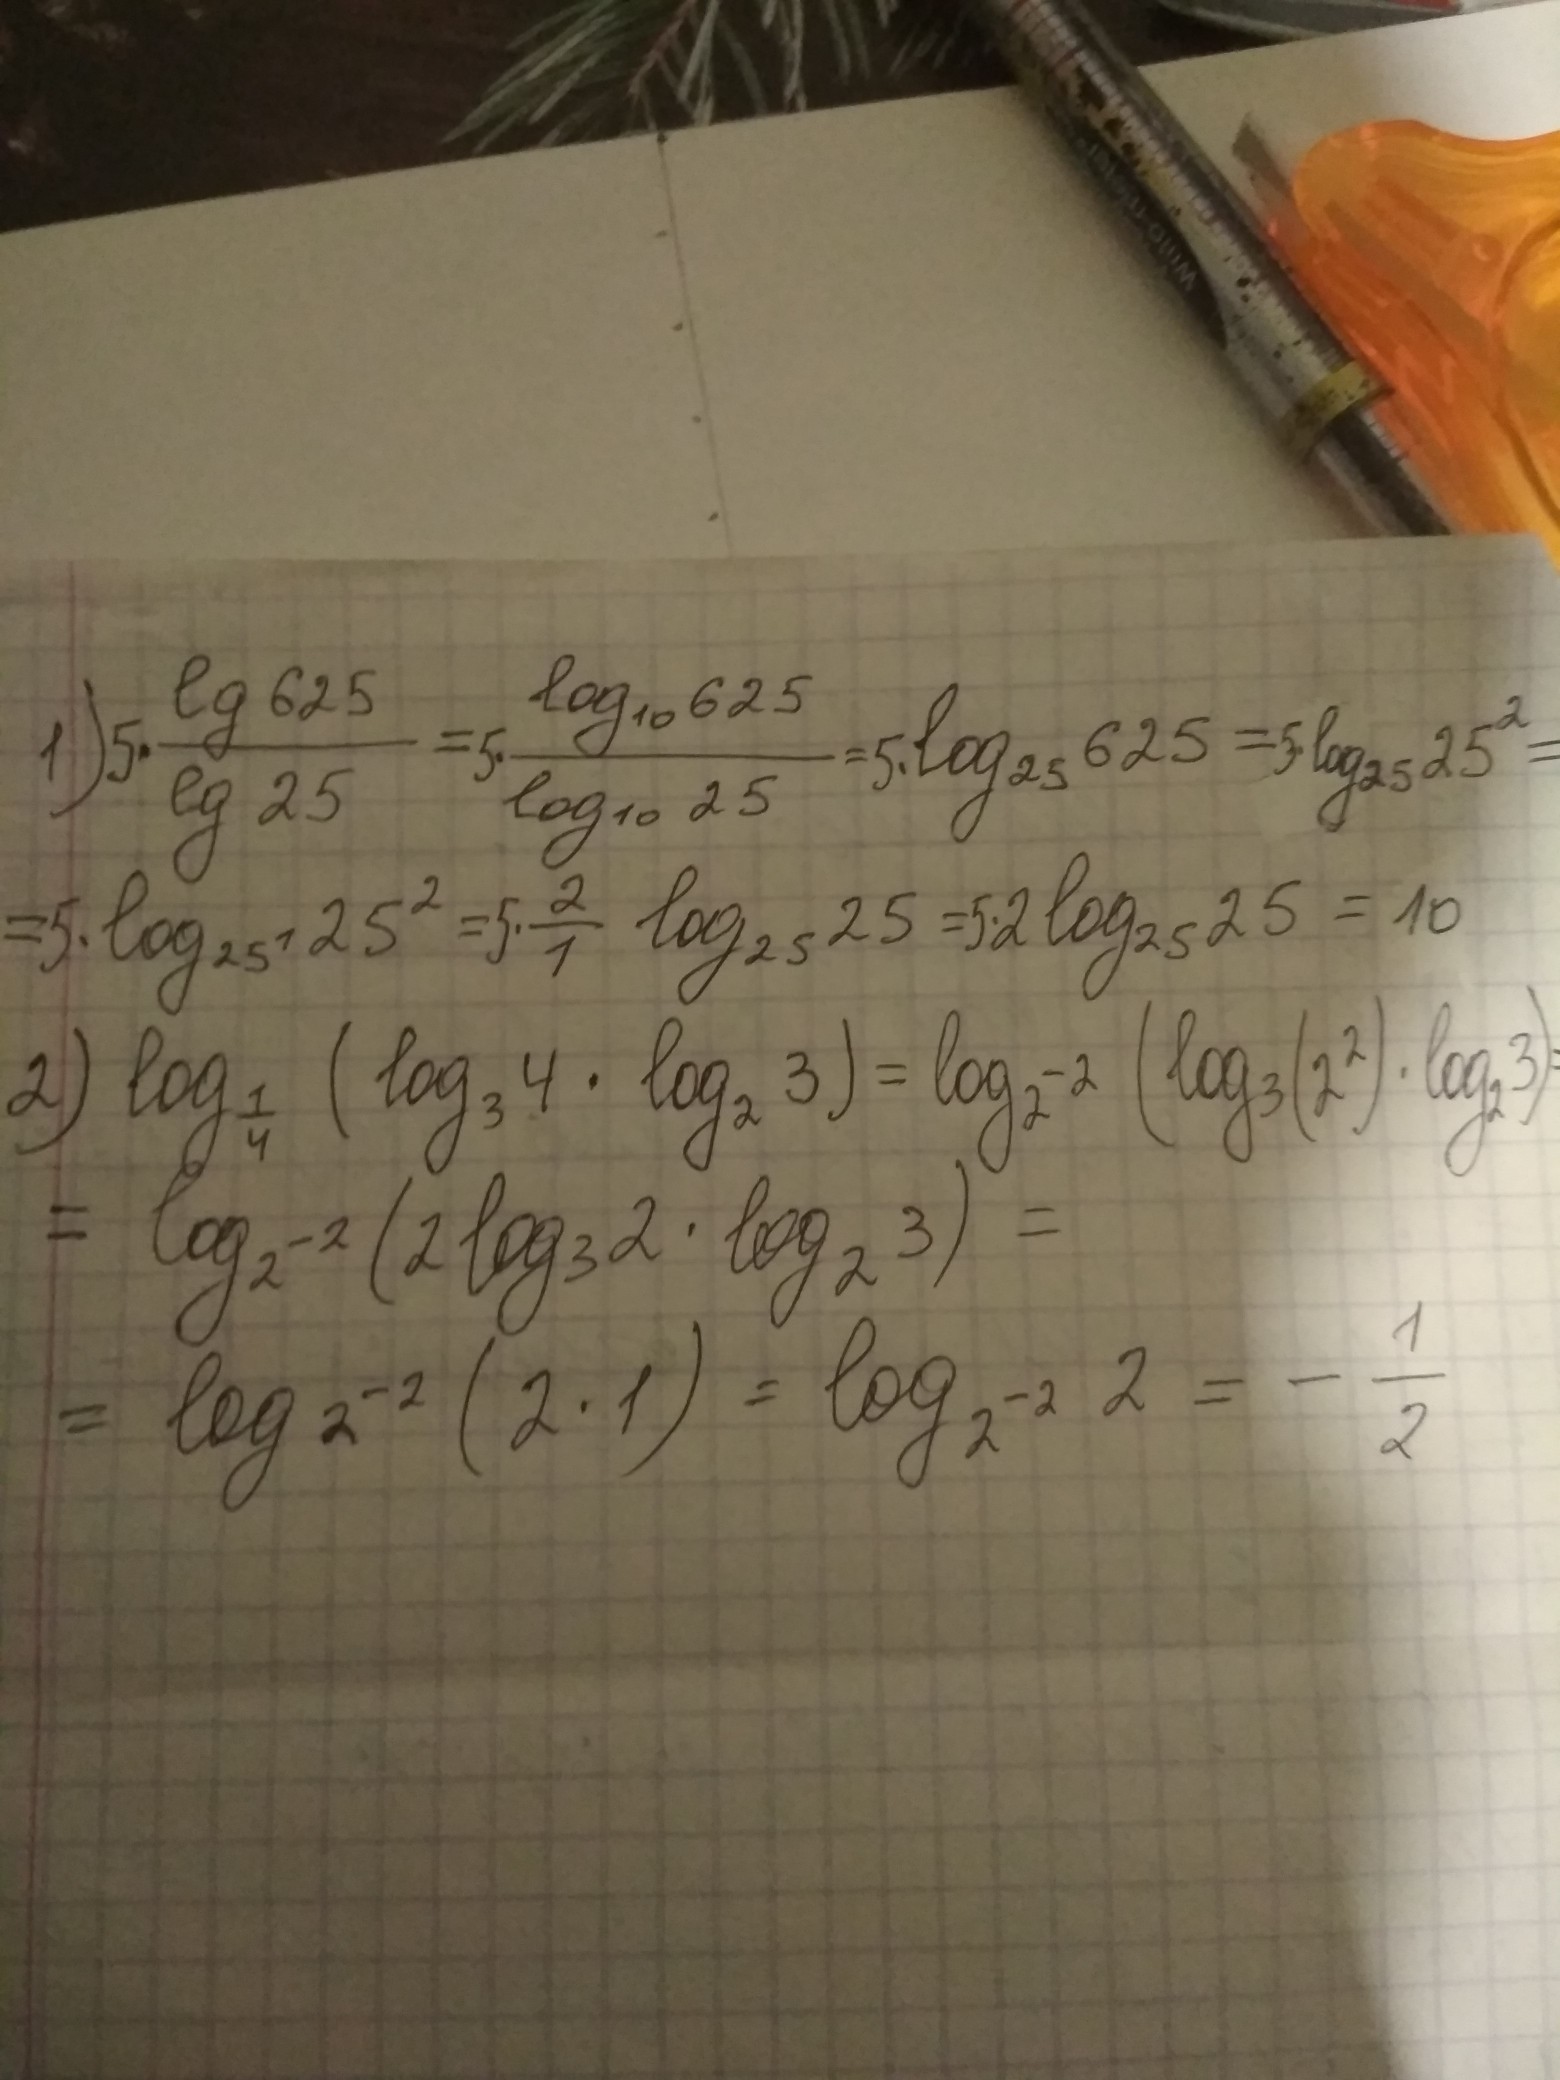 Multi-marker
1) 5·lg 625/lg 25 = 5·log₁₀ 625/log₁₀ 25 = 5·log₂₅ 625 = 5·log₂₅ 25² =
= 5·log₂₅¹ 25² = 5·2/1 log₂₅ 25 = 5·2 log₂₅ 25 = 10
2) log_1/4 (log₃ 4 · log₂ 3) = log_2⁻² (log₃ (2²) · log₂ 3) =
= log_2⁻² (2 log₃ 2 · log₂ 3) =
= log_2⁻² (2 · 1) = log_2⁻² 2 = - 1/2